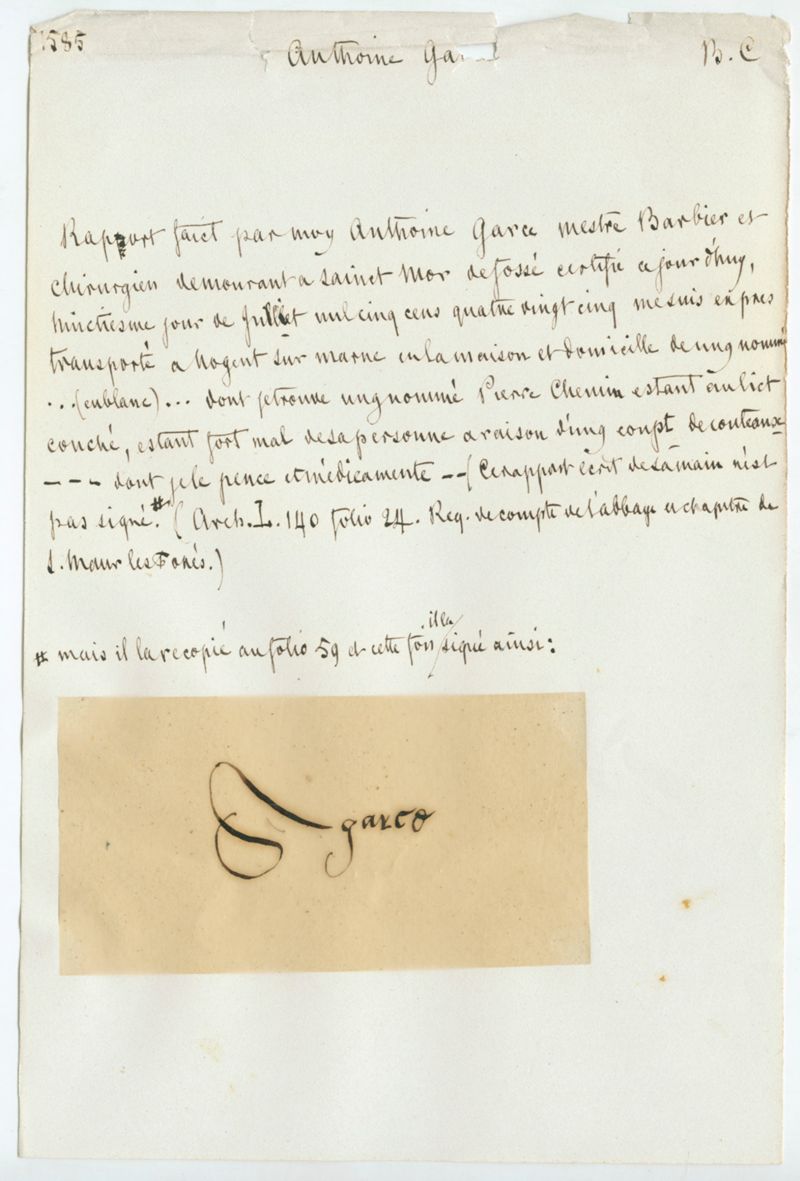 1585 Anthoine Ga B. C
Rapport faict par moy Anthoine Garce mestre Barbier et
chirurgien demourant a Sainct Mor de fossé certifié ce jourd'huy,
huictiesme jour de Juillet mil cinq cens quatre vingt cinq me suis exprès
transporté a Nogent sur marne en la maison et domicille de ung nommé
...(en blanc)... dont je trouve ung nommé Pierre Chemin estant au lict
couché, estant fort mal de sa personne a raison d'ung coupt de couteaux
--- dont je le pence et médicamente --(Ce rapport écrit de sa main n'est
pas signé.# (Arch. L. 140 folio 24. Reg. de compte de l'abbaye et chapitre de
S. Maur les Fossés.)
# mais il l'a recopié au folio 59 et cette fois il l'a signée ainsi:
garce